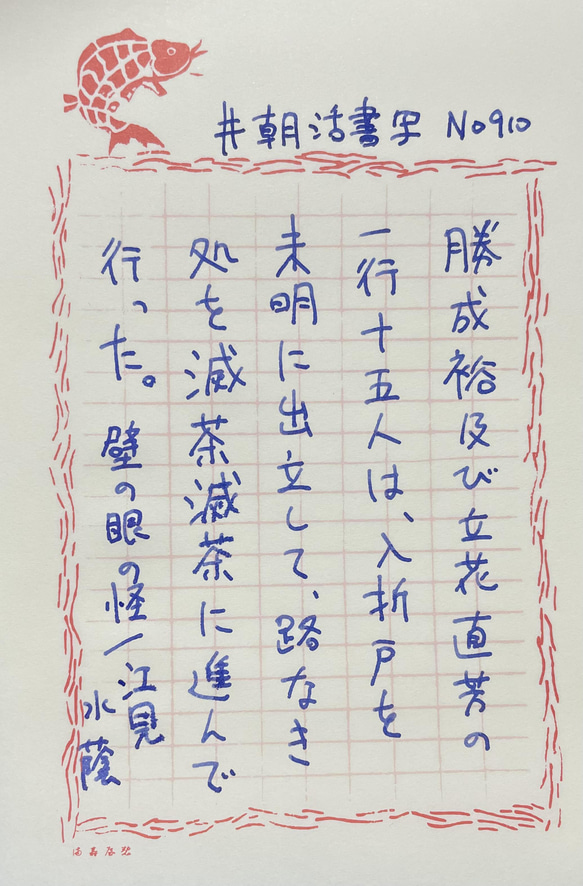 #朝活書写 No910
勝成裕及び立花直芳の
一行十五人は、入折戸を
未明に出立して、路なき
処を滅茶滅茶に進んで
行った。 壁の眼の怪/江見
水蔭